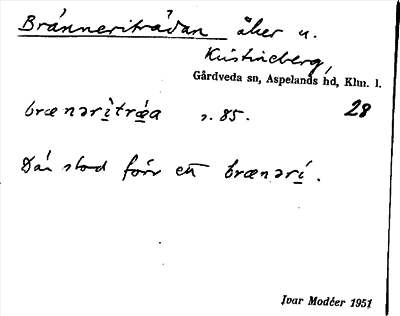 Bránneriträdan åker u.
Kristineberg,
Gårdveda sn, Aspelands hd, Klm. l.
brænərì̱trǽ̱a s. 85. 28
Där stod förr ett brænərí̱.
Ivar Modéer 1951